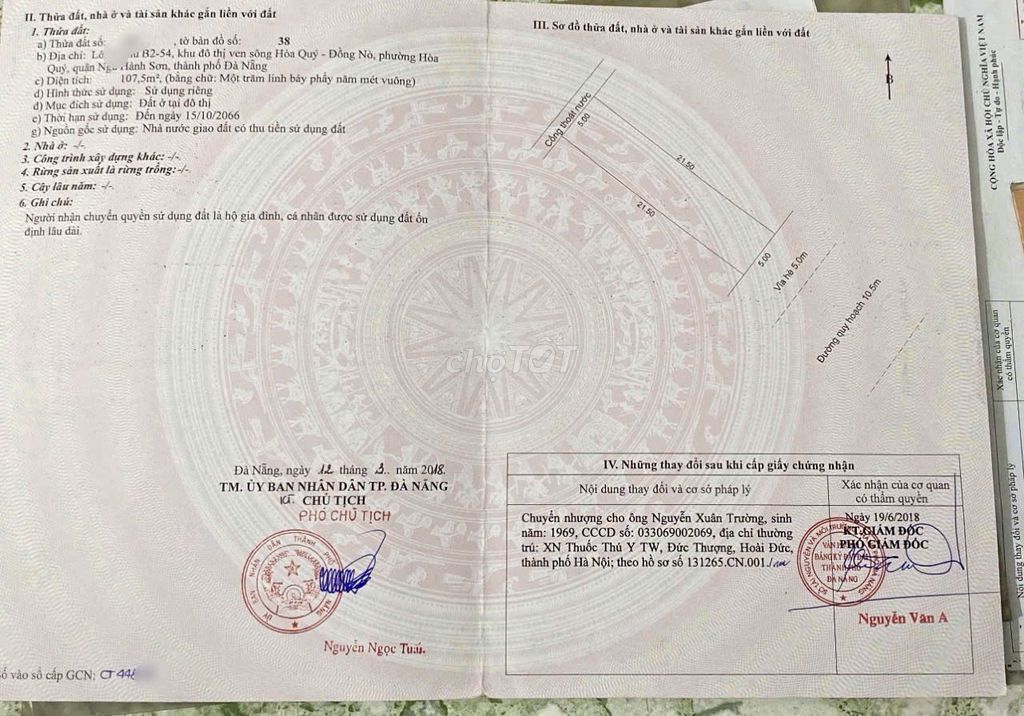 II. Thửa đất, nhà ở và tài sản khác gắn liền với đất
1. Thửa đất:
a) Thửa đất số: , tờ bản đồ số: 38
b) Địa chỉ: Lô B2-54, khu đô thị ven sông Hòa Quý - Đồng Nò, phường Hòa
Quý, quận Ngũ Hành Sơn, thành phố Đà Nẵng
c) Diện tích: 107,5m², (bằng chữ: Một trăm linh bảy phẩy năm mét vuông)
d) Hình thức sử dụng: Sử dụng riêng
đ) Mục đích sử dụng: Đất ở tại đô thị
e) Thời hạn sử dụng: Đến ngày 15/10/2066
g) Nguồn gốc sử dụng: Nhà nước giao đất có thu tiền sử dụng đất
2. Nhà ở: -/-
3. Công trình xây dựng khác: -/-
4. Rừng sản xuất là rừng trồng: -/-
5. Cây lâu năm: -/-
6. Ghi chú:
Người nhận chuyển quyền sử dụng đất là hộ gia đình, cá nhân được sử dụng đất ổn
định lâu dài.
Đà Nẵng, ngày 12 tháng 3.. năm 2018.
TM. ỦY BAN NHÂN DÂN TP. ĐÀ NẴNG
KT. CHỦ TỊCH
PHÓ CHỦ TỊCH
Nguyễn Ngọc Tuấ.
số vào sổ cấp GCN: CT 446
III. Sơ đồ thửa đất, nhà ở và tài sản khác gắn liền với đất
B
Cống thoát nước
5.00
21.50
21.50
5.00
Vỉa hè 5.0m
Đường quy hoạch 10.5m
chợTỐT
IV. Những thay đổi sau khi cấp giấy chứng nhận
Nội dung thay đổi và cơ sở pháp lý
Xác nhận của cơ quan
có thẩm quyền
Chuyển nhượng cho ông Nguyễn Xuân Trường, sinh
năm: 1969, CCCD số: 033069002069, địa chỉ thường
trú: XN Thuốc Thú Y TW, Đức Thượng, Hoài Đức,
thành phố Hà Nội; theo hồ sơ số 131265.CN.001./
Ngày 19/6/2018
KT.GIÁM ĐỐC
PHÓ GIÁM ĐỐC
Nguyễn Văn A
CỘNG HÒA XÃ HỘI CHỦ NGHĨA VIỆT NAM
Độc lập - Tự do - Hạnh phúc
Xác nhận của cơ quan
có thẩm quyền
Nội dung thay đổi và cơ sở pháp lý